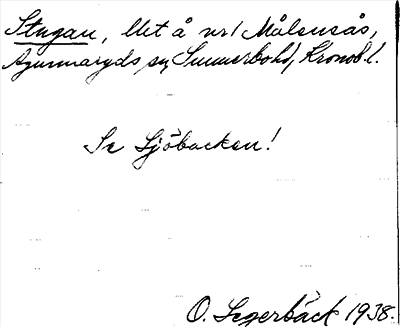 Stugan, llet å nr 1 Målensås,
Agunnaryds sn, Sunnerbo hd, Kronob. l.
Se Sjöbacken!
O. Segerbäck 1938.